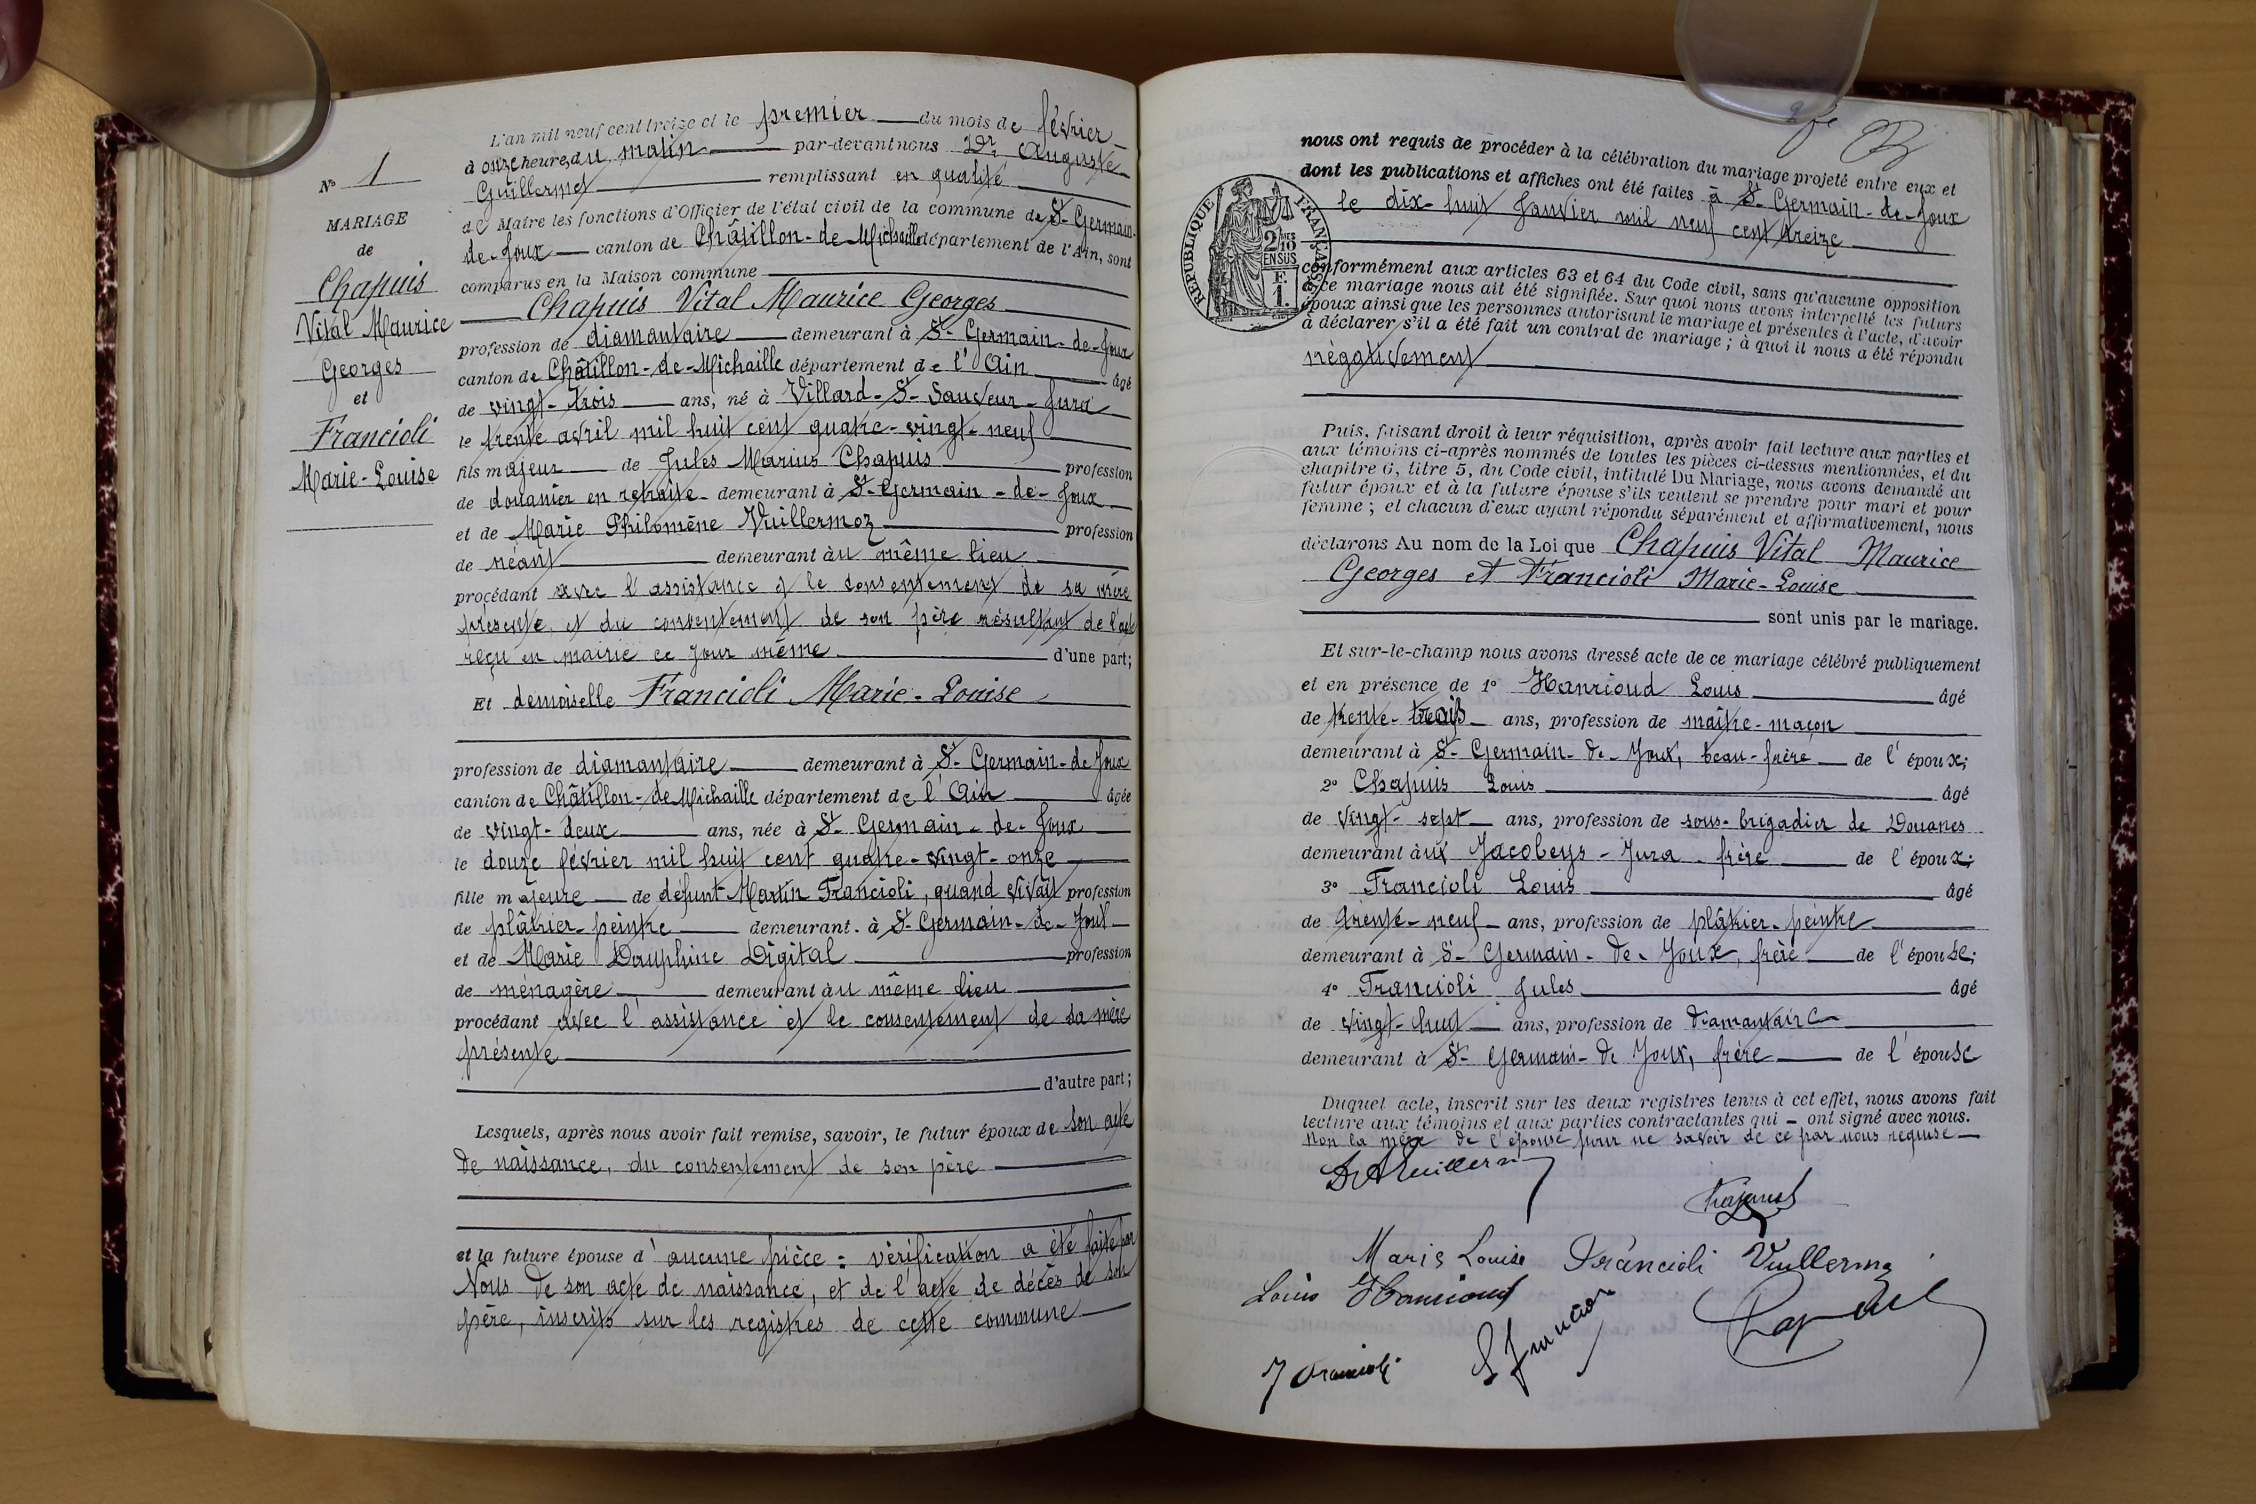 N° 1
MARIAGE
de
Chapuis
Vital Maurice
Georges
et
Francioli
Marie-Louise
L'an mil neuf cent treize et le premier du mois de février
à onze heures du matin par-devant nous Dr Auguste
remplissant en qualité
de Maire les fonctions d'Officier de l'état civil de la commune de St-Germain-
de-Joux canton de Châtillon-de-Michaille département de l'Ain, sont
comparus en la Maison commune
Chapuis Vital Maurice Georges
profession de diamantaire demeurant à St-Germain-de-Joux
canton de Châtillon-de-Michaille département de l'Ain âgé
de vingt-trois ans, né à Villard-St-Sauveur-Jura
le trente avril mil huit cent quatre-vingt-neuf
fils majeur de Jules Marius Chapuis profession
de douanier en retraite demeurant à St-Germain-de-Joux
et de Marie Philomène Vuillermoz profession
de néant demeurant au même lieu
procédant avec l'assistance et le consentement de sa mère
présente, et du consentement de son père résultant de l'acte
reçu en mairie ce jour même d'une part;
Et demoiselle Francioli Marie-Louise
profession de diamantaire demeurant à St-Germain-de-Joux
canton de Châtillon-de-Michaille département de l'Ain âgée
de vingt-deux ans, née à St-Germain-de-Joux
le douze février mil huit cent quatre-vingt-onze
fille majeure de défunt Martin Francioli, quand vivait profession
de plâtrier-peintre demeurant à St-Germain-de-Joux
et de Marie Dauphine Digital profession
de ménagère demeurant au même lieu
procédant avec l'assistance et le consentement de sa mère
présente
d'autre part;
Lesquels, après nous avoir fait remise, savoir, le futur époux de son acte
de naissance, du consentement de son père
et la future épouse d'aucune pièce : vérification a été faite par
Nous de son acte de naissance, et de l'acte de décès de son
père, inscrits sur les registres de cette commune
RÉPUBLIQUE FRANÇAISE
2/10 EN SUS
F.
1.
nous ont requis de procéder à la célébration du mariage projeté entre eux et
dont les publications et affiches ont été faites à St-Germain-de-Joux
le dix-huit Janvier mil neuf cent treize
conformément aux articles 63 et 64 du Code civil, sans qu'aucune opposition
à ce mariage nous ait été signifiée. Sur quoi nous avons interpellé les futurs
époux ainsi que les personnes autorisant le mariage et présentes à l'acte, d'avoir
à déclarer s'il a été fait un contrat de mariage ; à quoi il nous a été répondu
négativement
Puis, faisant droit à leur réquisition, après avoir fait lecture aux parties et
aux témoins ci-après nommés de toutes les pièces ci-dessus mentionnées, et du
chapitre 6, titre 5, du Code civil, intitulé Du Mariage, nous avons demandé au
futur époux et à la future épouse s'ils veulent se prendre pour mari et pour
femme ; et chacun d'eux ayant répondu séparément et affirmativement, nous
déclarons Au nom de la Loi que Chapuis Vital Maurice
Georges et Francioli Marie-Louise
sont unis par le mariage.
Et sur-le-champ nous avons dressé acte de ce mariage célébré publiquement
et en présence de 1° Hanrioud Louis âgé
de trente-trois ans, profession de maître-maçon
demeurant à St-Germain-de-Joux, beau-frère de l'époux;
2° Chapuis Louis âgé
de vingt-sept ans, profession de sous-brigadier de Douanes
demeurant aux Jacobeys-Jura frère de l'époux;
3° Francioli Louis âgé
de trente-neuf ans, profession de plâtrier-peintre
demeurant à St-Germain-de-Joux, frère de l'épouse;
4° Francioli Jules âgé
de vingt-huit ans, profession de diamantaire
demeurant à St-Germain-de Joux, frère de l'épouse
Duquel acte, inscrit sur les deux registres tenus à cet effet, nous avons fait
lecture aux témoins et aux parties contractantes qui ont signé avec nous.
non la mère de l'épouse pour ne savoir de ce par nous requise
Marie Louise Francioli Vuillermoz
Louis Hanrioud
J Francioli